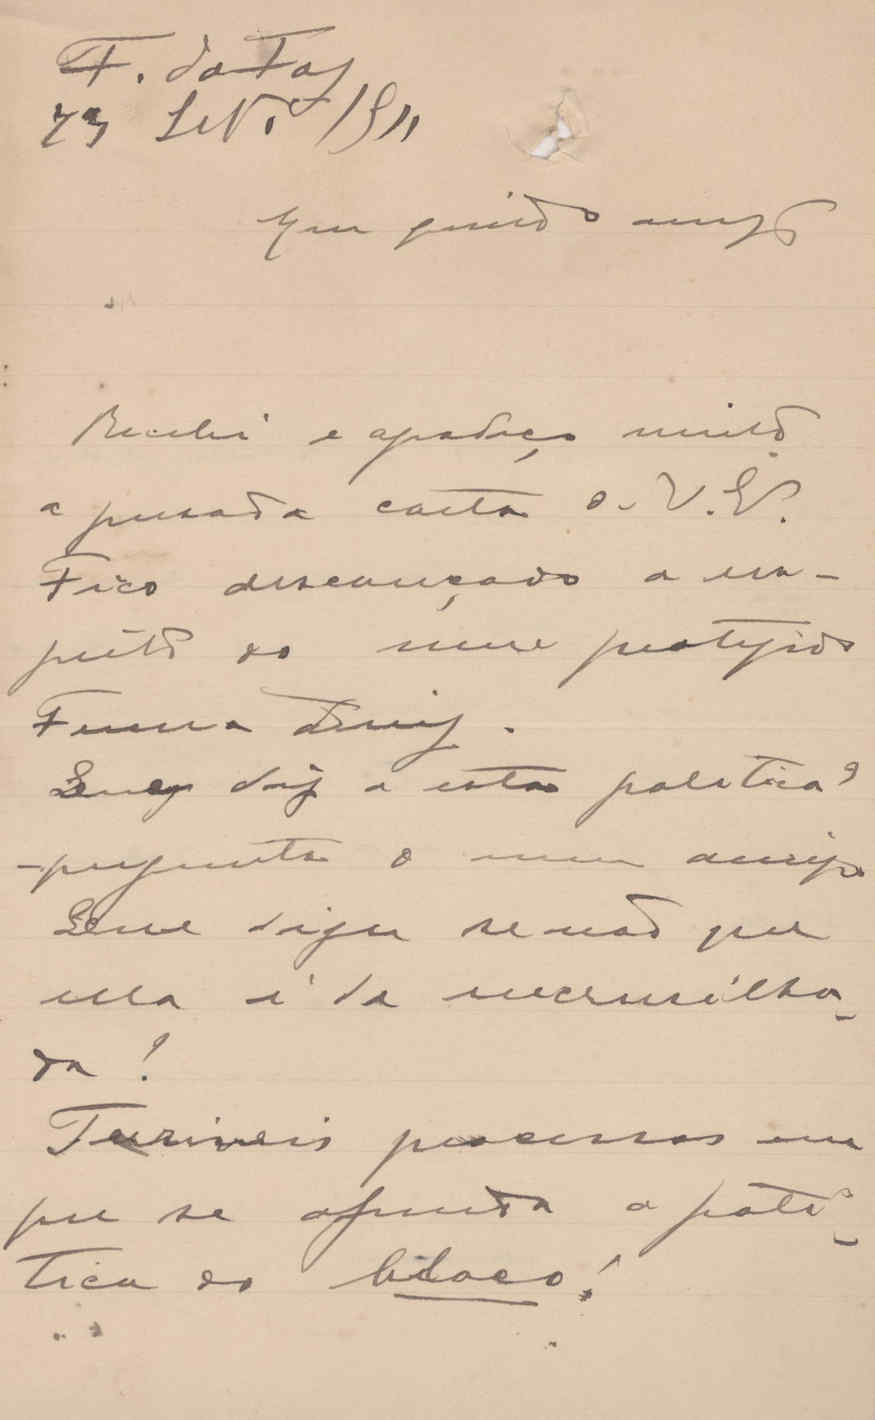 F. da Foz
23 Set.º 1911
Meu querido amigo
Recebi e agradeço muito
a presada carta de V. Ex.
Fico descançado a res-
peito do meu protegido
Diniz.
Que diz a esta politica?
-pergunta o meu amigo.
Que digo senão que
ella é da encrusilha-
da!
Terriveis processos em
que se afunda a poli-
tica do bloco!